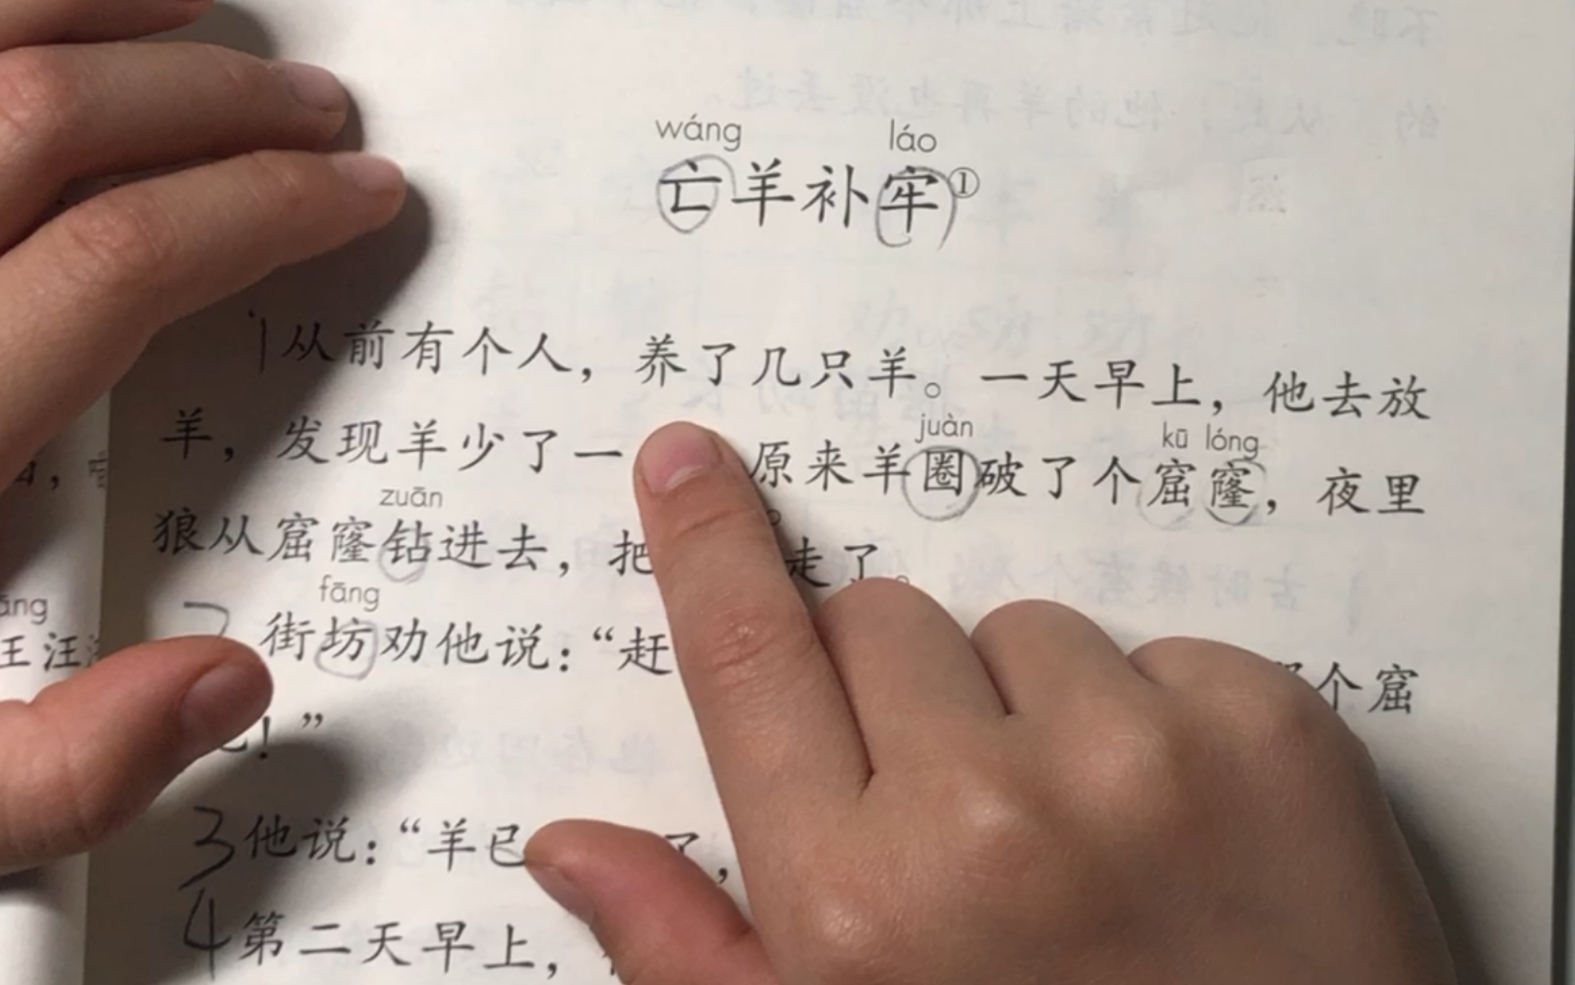 wáng láo
亡羊补牢①
1从前有个人，养了几只羊。一天早上，他去放
juàn kū lóng
羊，发现羊少了一 原来羊圈破了个窟窿，夜里
zuān
狼从窟窿钻进去，把 走了。
fāng
2 街坊劝他说：“赶 个窟
！”
3他说：“羊已 了，
4第二天早上，
āng
王汪